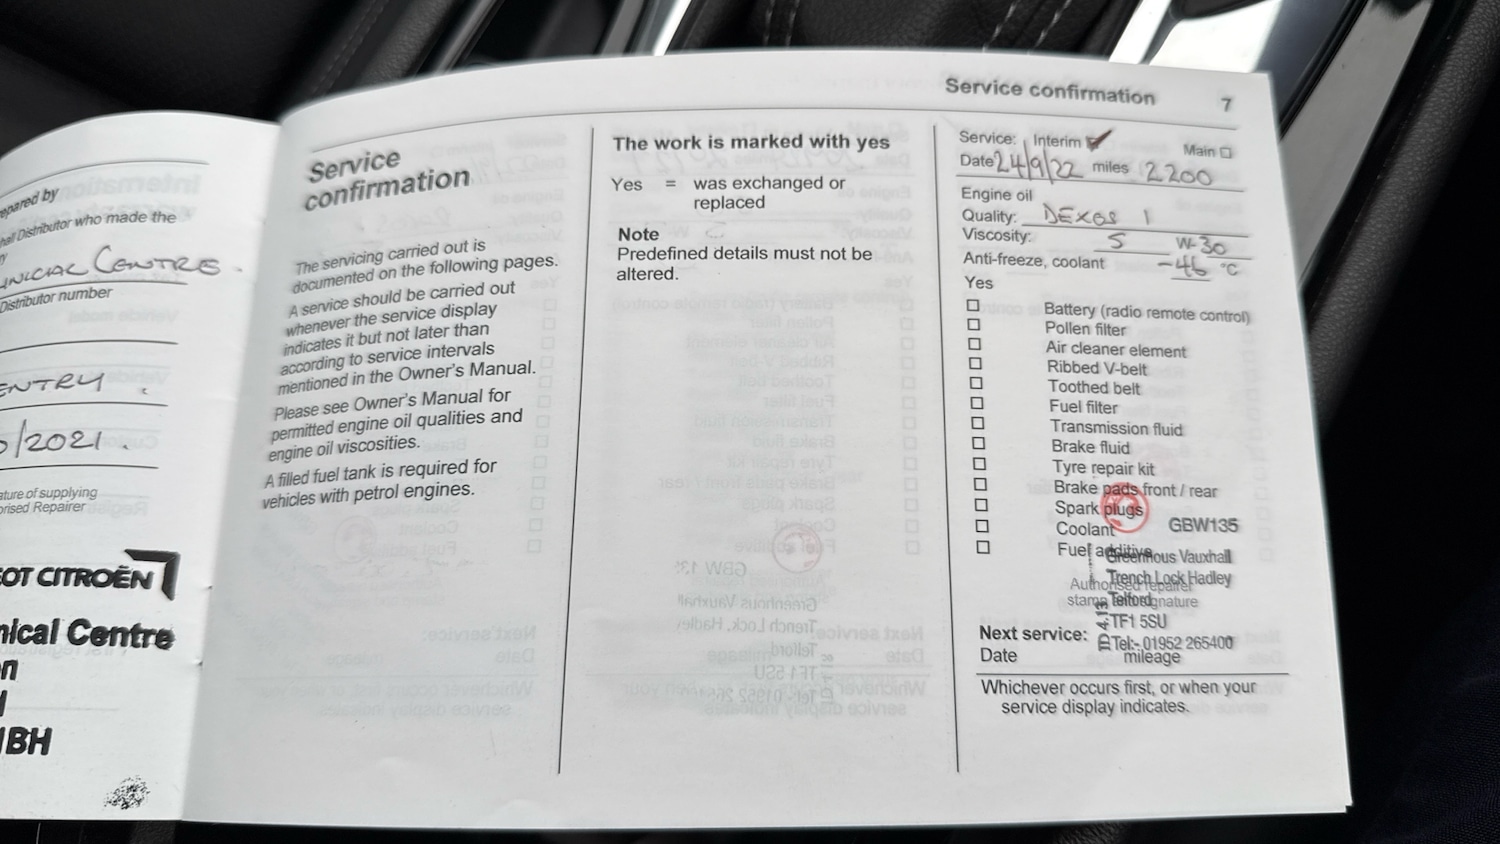 epared by
hall Distributor who made the
HNICIAL CENTRE.
Distributor number
ENTRY.
0/2021.
ature of supplying
orised Repairer
EOT CITROËN
nical Centre
n
1BH
Service confirmation 7
Service
confirmation
The servicing carried out is
documented on the following pages.
A service should be carried out
whenever the service display
indicates it but not later than
according to service intervals
mentioned in the Owner's Manual.
Please see Owner's Manual for
permitted engine oil qualities and
engine oil viscosities.
A filled fuel tank is required for
vehicles with petrol engines.
The work is marked with yes
Yes = was exchanged or
replaced
Note
Predefined details must not be
altered.
Service: Interim Main
Date 24/9/22 miles 12200
Engine oil
Quality: DEXOS 1
Viscosity: 5 W-30
Anti-freeze, coolant -46 °C
Yes
Battery (radio remote control)
Pollen filter
Air cleaner element
Ribbed V-belt
Toothed belt
Fuel filter
Transmission fluid
Brake fluid
Tyre repair kit
Brake pads front / rear
Spark plugs
Coolant GBW135
Fuel additive
Greenhous Vauxhall
Trench Lock Hadley
Authorised repairer
Telford
stamp signature
TF1 5SU
Next service:
Tel:- 01952 265400
Date mileage
Whichever occurs first, or when your
service display indicates.